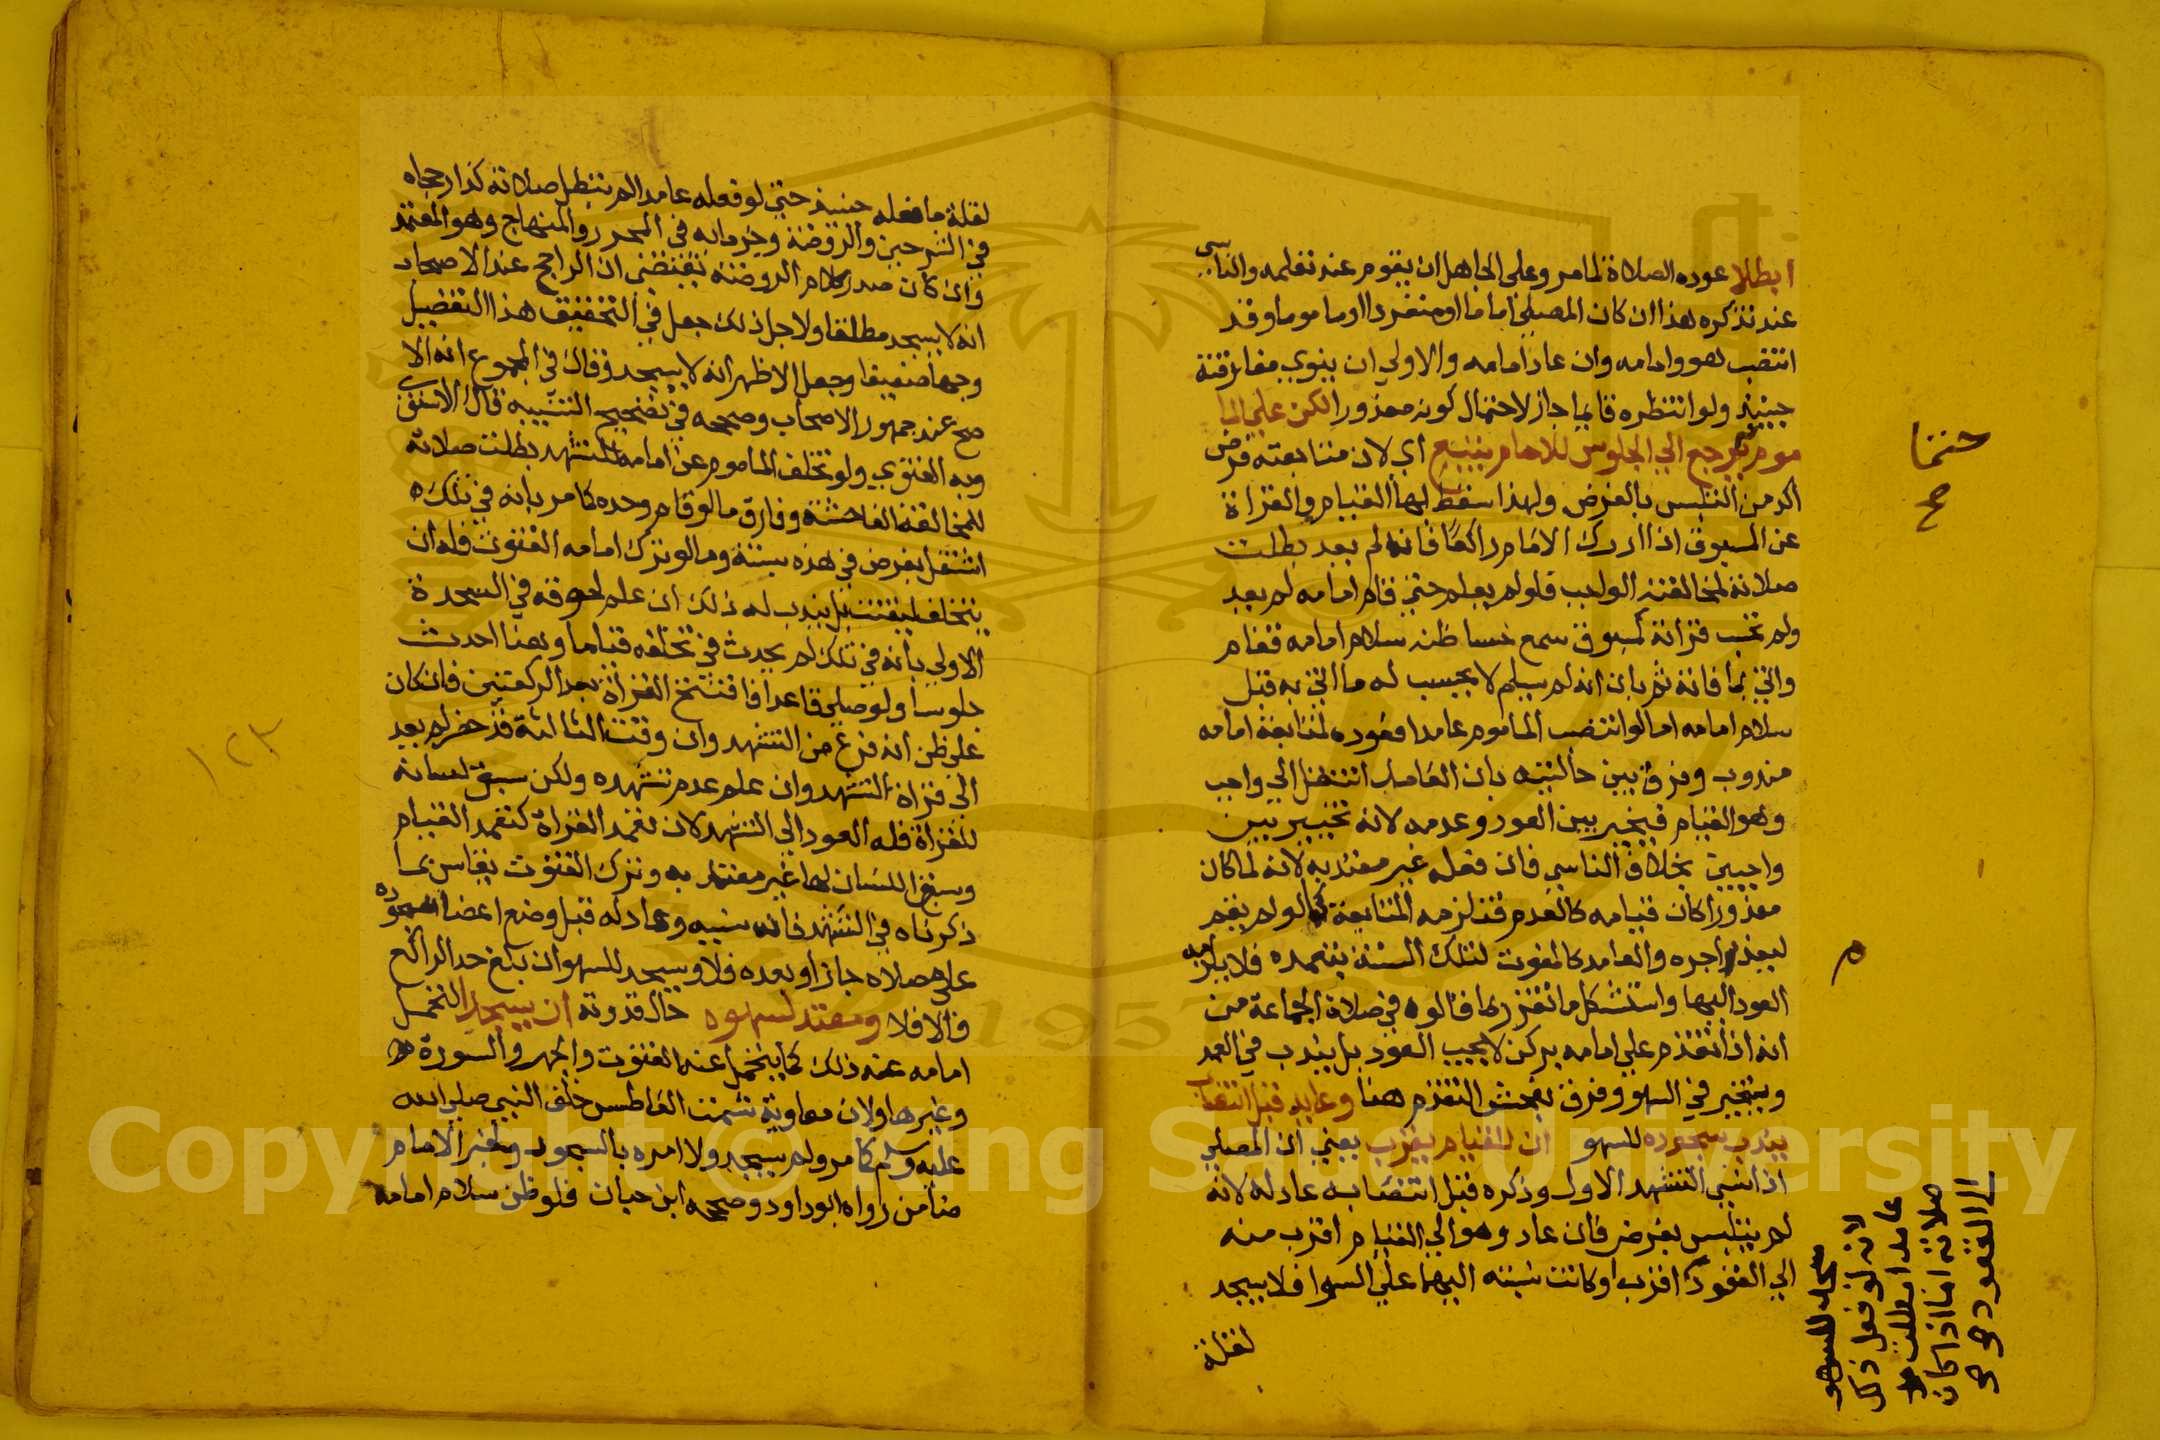 ابطلا عوده الصلاة لما مر وعلى الجاهل ان يقوم عند تعلمه والناسي
عند تذكره هذا ان كان المصلي اماما او منفردا او ماموما وقد
انتصب هو وامامه وان عاد امامه والاولي ان ينوي مفارقته
حينيذ ولو انتظره قايما جاز لاحتمال كونه معذورا لكن علي الما
موم يرجع الي الجلوس للامام يتبع اي لان متابعته فرض
اكد من التلبس بالفرض ولهذا سقط بها القيام والقراة
عن المسبوق اذا ادرك الامام راكعا فانه لم يعد بطلت
صلاته لمخالفته الواجب فلو لم يعلم حتي قام امامه لم يعد
ولم تحسب قراته كمسبوق سمع حسا ظنه سلام امامه فقام
واتي بما فاته ثم بان انه لم يسلم لا يحسب له ما اتي به قبل
سلام امامه اما لو انتصب الماموم عامدا فعوده لمتابعة امامه
مندوب وفرق بين حالتيه بان العامد انتقل الي واجب
وهو القيام فيخير بين العود وعدمه لانه تخيير بين
واجبين بخلاف الناسي فان فعله غير معتد به لانه لما كان
معذورا كان قيامه كالعدم فتلزمه المتابعة كما لو لم يقم
ليعذر اجره والعامد كالمفوت لتلك السنة بتعمده فلا يلزمه
العود اليها واستشكل ما تقرر بما قالوه في صلاة الجماعة من
انه اذا تقدم علي امامه بركن لا يجب العود بل يندب في العمد
ويتخير في السهو وفرق بفحش التقدم هنا وعايد قبل انتصاب
يندب سجوده للسهو ان للقيام يقرب يعني ان المصلي
اذا نسي التشهد الاول وذكره قبل انتصابه عاد له لانه
لم يتلبس بفرض فان عاد وهو الي القيام اقرب منه
الي القعود اقرب او كانت نسبته اليهما علي السوا فلا يسجد
لقلة
حتما
صح
م
سجد للسهو
لانه لو فعل ذلك
عامدا بطلت
صلاته اما اذا كان
الي القعود
لقلة ما فعله حينيذ حتي لو فعله عامدا لم تبطل صلاته كذا رجحاه
في الشرحين والروضة وجزما به في المحرر والمنهاج وهو المعتمد
وان كان صدر كلام الروضة يقتضي ان الراجح عند الاصحاب
انه لا يسجد مطلقا ولاجل ذلك جعل في التحقيق هذا التفصيل
وجها ضعيفا وجعل الاظهر انه لا يسجد وقال في المجموع انه الا
صح عند جمهور الاصحاب وصححه في تصحيح التنبيه قال الاسنوي
وبه الفتوي ولو تخلف الماموم عن امامه للتشهد بطلت صلاته
للمخالفة الفاحشة وفارق ما لو قام وحده كما مر بانه في تلك
اشتغل بفرض في هذه بسنة وما لو ترك امامه القنوت فله ان
يتخلف ليقنت بل يندب له ذلك ان علم لحوقه في السجدة
الاولي بانه في تلك لم يحدث في تخلفه قياما وهنا احدث
جلوسا ولو صلي قاعدا فافتتح القراة بعد الركعتين فان كان
علي ظن انه فرغ من التشهد وان وقت الثالثة قد حضر لم يعد
الي قراة التشهد وان علم عدم تشهده ولكن سبق لسانه
للقراة فله العود الي التشهد لان تعمد القراة كتعمد القيام
وسبق اللسان لها غير معتد به وترك القنوت يقاس بما
ذكرناه في التشهد فان نسيه وعاد له قبل وضع اعضا سجوده
علي مصلاه جاز او بعده فلا ويسجد للسهو ان بلغ حد الراكع
والا فلا ومقتد لسهوه حال قدوته ان يسجد لتحمل
امامه عنه ذلك كما يتحمل عنه القنوت والجهر والسورة
وغيرها ولان معاوية تشمت العاطس خلف النبي صلي الله
عليه وسلم كما مر ولم يسجد ولا امره بالسجود ولخبر الامام
ضامن رواه ابو داود وصححه ابن حبان فلو ظن سلام امامه
١٢٣
Copyright © King Saud University
1957